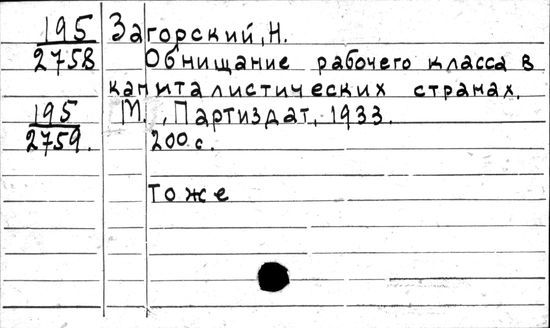 195 Загорский, Н.
2758 Обнищание рабочего класса в
капиталистических странах.
195 М., Партиздат, 1933.
2759. 200 с.
То же